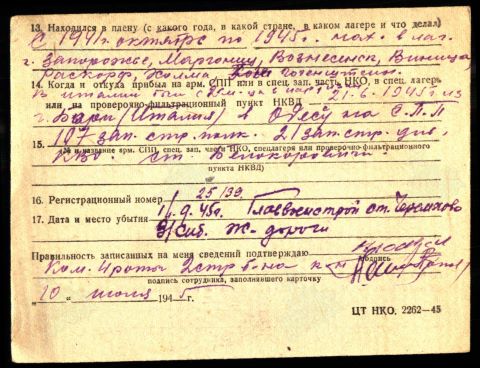 13. Находился в плену (с какого года, в какой стране, в каком лагере и что делал)
С 1941г. октябрь по 1945г. нах. в лаг.
г. Запорожье, Марганец, Вознесенск, Виница
14. Когда и откуда прибыл на арм. СПП или в спец. зап. часть НКО, в спец. лагерь
или на проверочно-фильтрационный пункт НКВД 21.6.1945г из
г. Бари (Италия) в Одесу на С.П.П
107 зап. стр. полк. 21 зап. стр. див.
15.
(№ и название арм. СПП, спец. зап. части НКО, спецлагеря или проверочно-фильтрационного
КВО. ст. Белокоровичи
пункта НКВД)
16. Регистрационный номер 25/39
17. Дата и место убытия 1/9.45г. Главжилстрой ст. Черемхово
В/Сиб. Ж-дороги
Правильность записанных на меня сведений подтверждаю
подпись
Ком. 4 роты 2 стр б-на к-н
подпись сотрудника, заполнявшего карточку
"10" июля 1945 г.
ЦТ НКО. 2262—45